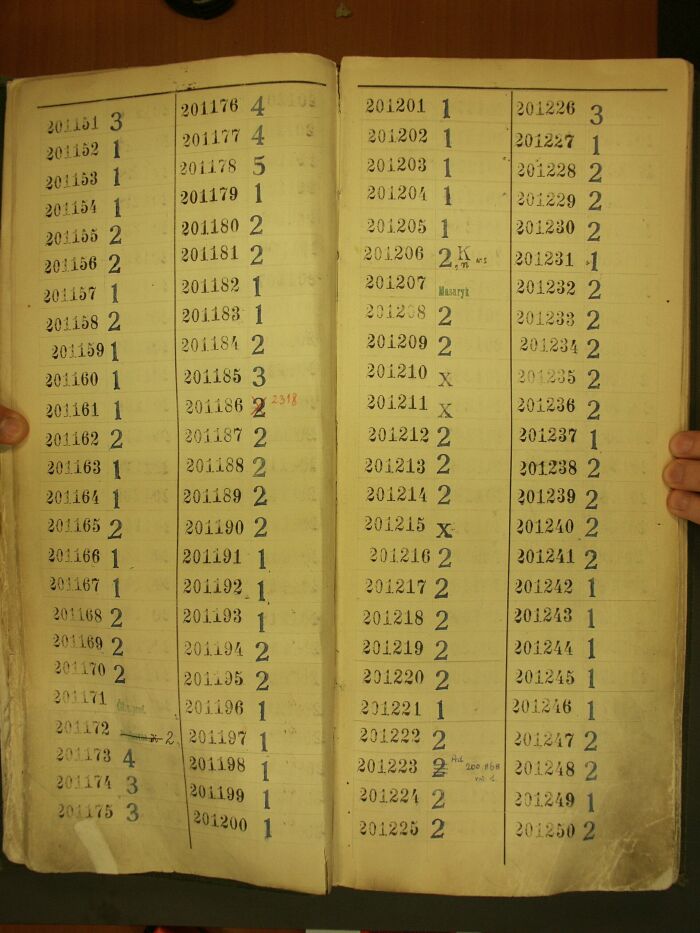 201151 3
201152 1
201153 1
201154 1
201155 2
201156 2
201157 1
201158 2
201159 1
201160 1
201161 1
201162 2
201163 1
201164 1
201165 2
201166 1
201167 1
201168 2
201169 2
201170 2
201171
201172 2
201173 4
201174 3
201175 3
201176 4
201177 4
201178 5
201179 1
201180 2
201181 2
201182 1
201183 1
201184 2
201185 3
201186 2 2318
201187 2
201188 2
201189 2
201190 2
201191 1
201192 1
201193 1
201194 2
201195 2
201196 1
201197 1
201198 1
201199 1
201200 1
201201 1
201202 1
201203 1
201204 1
201205 1
201206 2 K
201207 Masaryk
201208 2
201209 2
201210 x
201211 x
201212 2
201213 2
201214 2
201215 x
201216 2
201217 2
201218 2
201219 2
201220 2
201221 1
201222 2
201223 2
201224 2
201225 2
201226 3
201227 1
201228 2
201229 2
201230 2
201231 1
201232 2
201233 2
201234 2
201235 2
201236 2
201237 1
201238 2
201239 2
201240 2
201241 2
201242 1
201243 1
201244 1
201245 1
201246 1
201247 2
201248 2
201249 1
201250 2